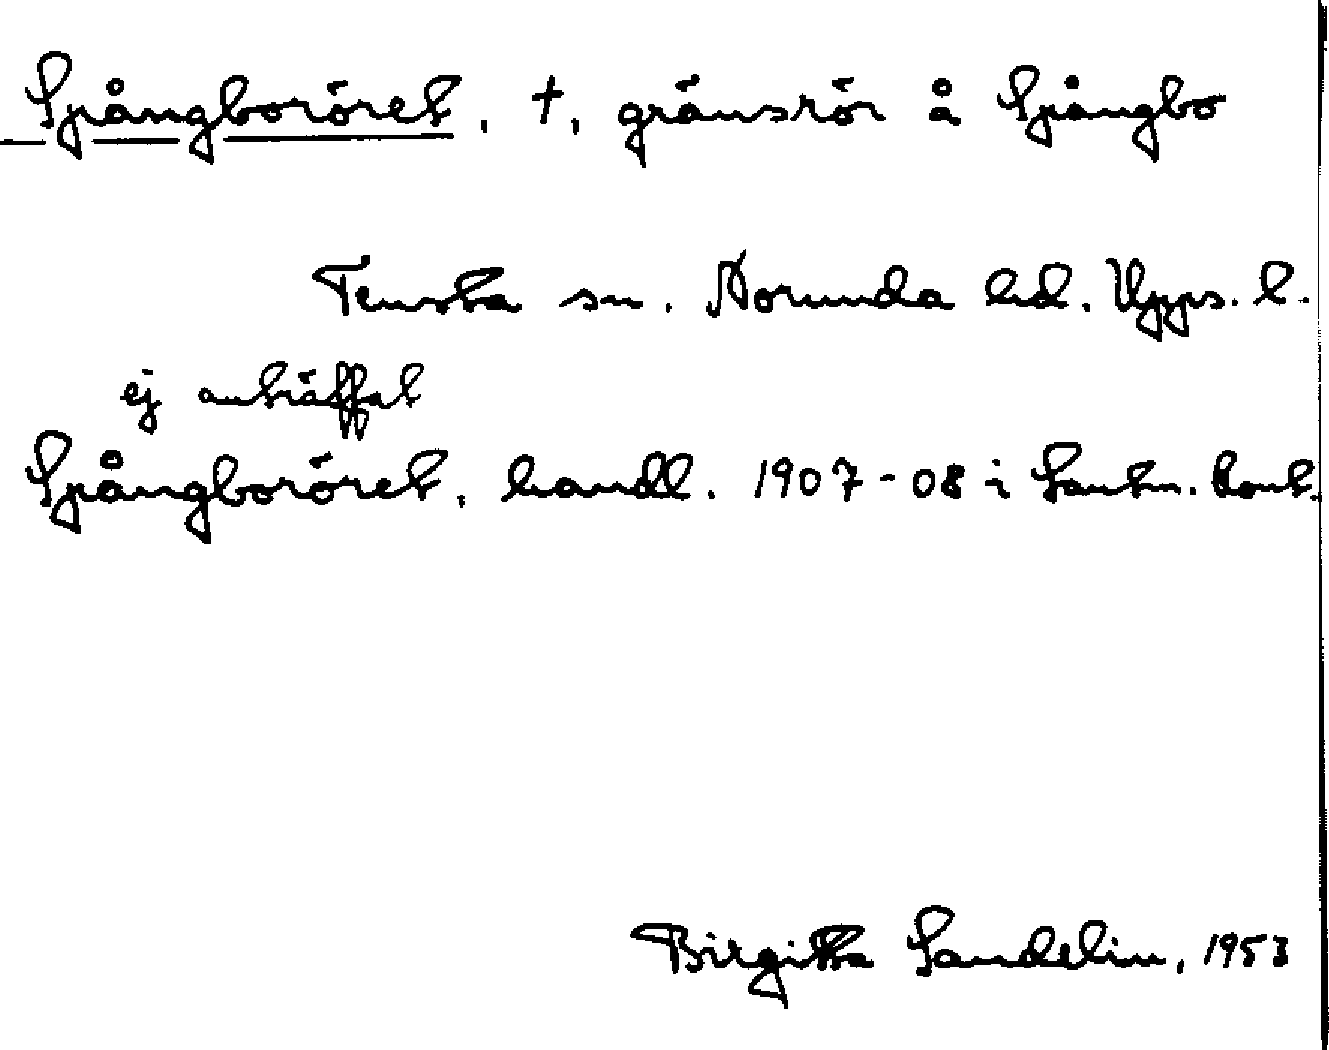 Spångboröret, †, gränsrör å Spångbo
Tensta sn. Norunda hd. Upps. l.
ej anträffat
Spångboröret, handl. 1907-08 i Lantm. kont.
Birgitta Sandelin, 1953